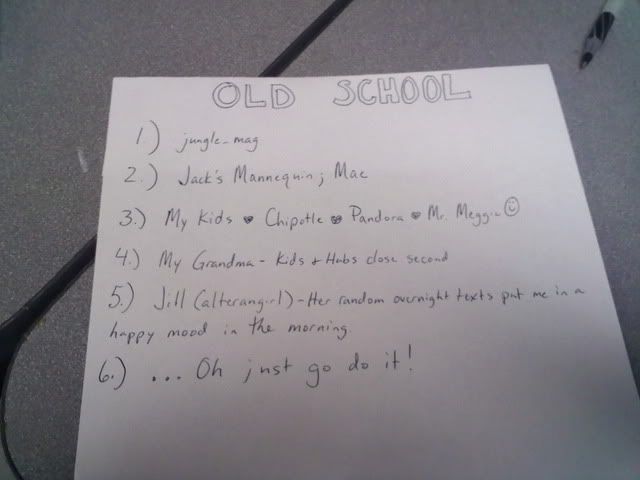 OLD SCHOOL
1) jungle_mag
2.) Jack's Mannequin; Mac
3.) My Kids ♥ Chipotle ♥ Pandora ♥ Mr. Meggie ☺
4.) My Grandma - Kids + Hubs close second
5.) Jill (alterangirl) - Her random overnight texts put me in a
happy mood in the morning.
6.) ... Oh just go do it!